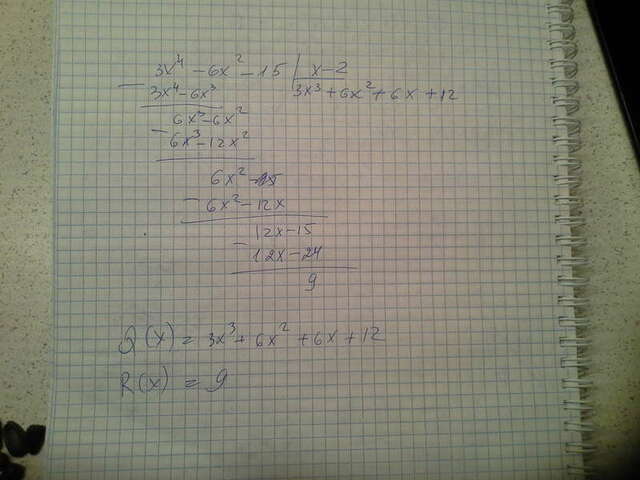 3x⁴ - 6x² - 15 | x - 2
- 3x⁴ - 6x³ 3x³ + 6x² + 6x + 12
6x³ - 6x²
- 6x³ - 12x²
6x² - 15
- 6x² - 12x
12x - 15
- 12x - 24
9
Q(x) = 3x³ + 6x² + 6x + 12
R(x) = 9